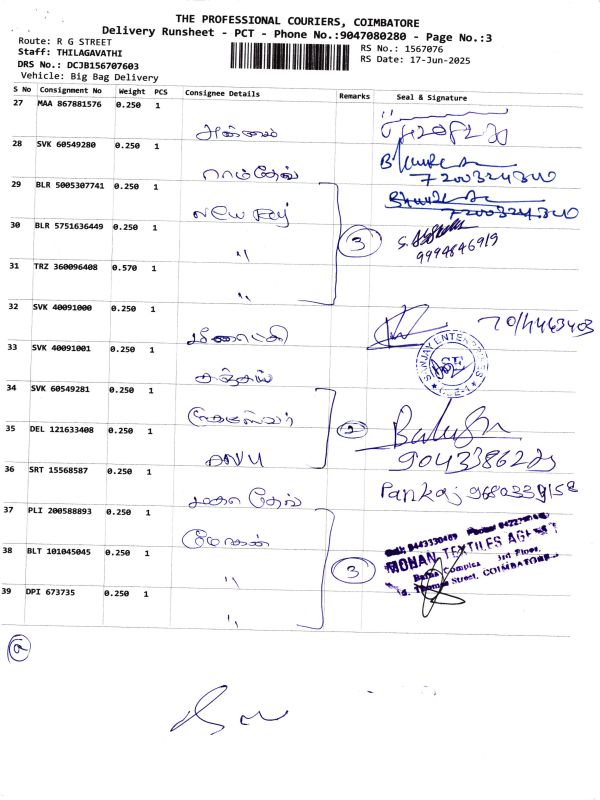 THE PROFESSIONAL COURIERS, COIMBATORE
Delivery Runsheet - PCT - Phone No.:9047080280 - Page No.:3
Route: R G STREET
RS No.: 1567076
Staff: THILAGAVATHI
RS Date: 17-Jun-2025
DRS No.: DCJB156707603
Vehicle: Big Bag Delivery
S No Consignment No Weight PCS Consignee Details Remarks Seal & Signature
27 MAA 867881576 0.250 1
அன்னை
28 SVK 60549280 0.250 1
ராம்தேவ் 7200324340
29 BLR 5005307741 0.250 1
New Raj 7200324340
30 BLR 5751636449 0.250 1
" 3 9994846919
31 TRZ 360096408 0.570 1
"
32 SVK 40091000 0.250 1
மீனாட்சி
33 SVK 40091001 0.250 1
சஞ்சய் SANJAY ENTERPRISES SE
34 SVK 60549281 0.250 1
2
35 DEL 121633408 0.250 1
ANU
36 SRT 15568587 0.250 1
Pankaj 9680339158
37 PLI 200588893 0.250 1
மோகன்
38 BLT 101045045 0.250 1
" 3 MOHAN TEXTILES AGENCY
39 DPI 673735 0.250 1
" Thomas Street, COIMBATORE
a